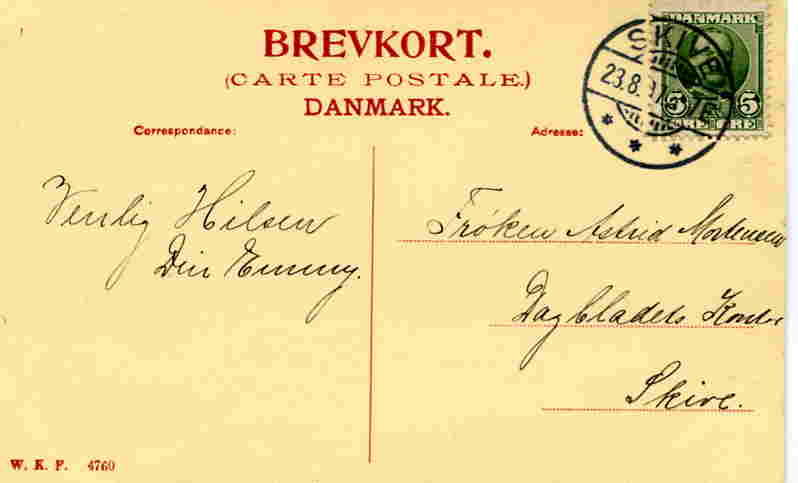 BREVKORT.
(CARTE POSTALE.)
DANMARK.
Correspondance:
Adresse:
DANMARK
5 5
ØRE ØRE
SKIVE
23.8.
Venlig Hilsen
Din Emmy.
Frøken Astrid Mortensen
Dagbladets Kontor
Skive.
W. K. F. 4760